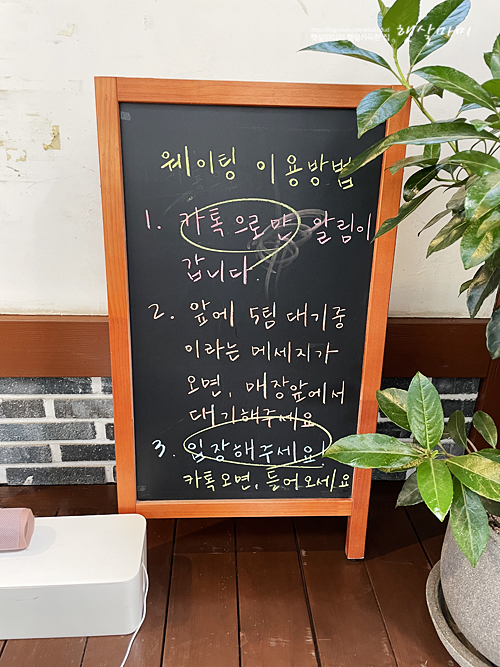 햇살마미
웨이팅 이용방법
1. 카톡으로만 알림이
갑니다.
2. 앞에 5팀 대기중
이라는 메세지가
오면, 매장앞에서
대기해주세요
3. 입장해주세요!
카톡오면, 들어오세요